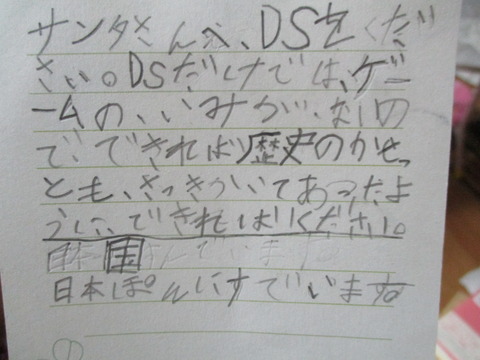 サンタさんへ、DSをくだ
さい。DSだけでは、ゲー
ームの、いみが、ないの
で、できれば歴史のかせっ
とも、さっきかいてあったよ
うに、できればください。
日本国
日本ぽんにすでいます
の